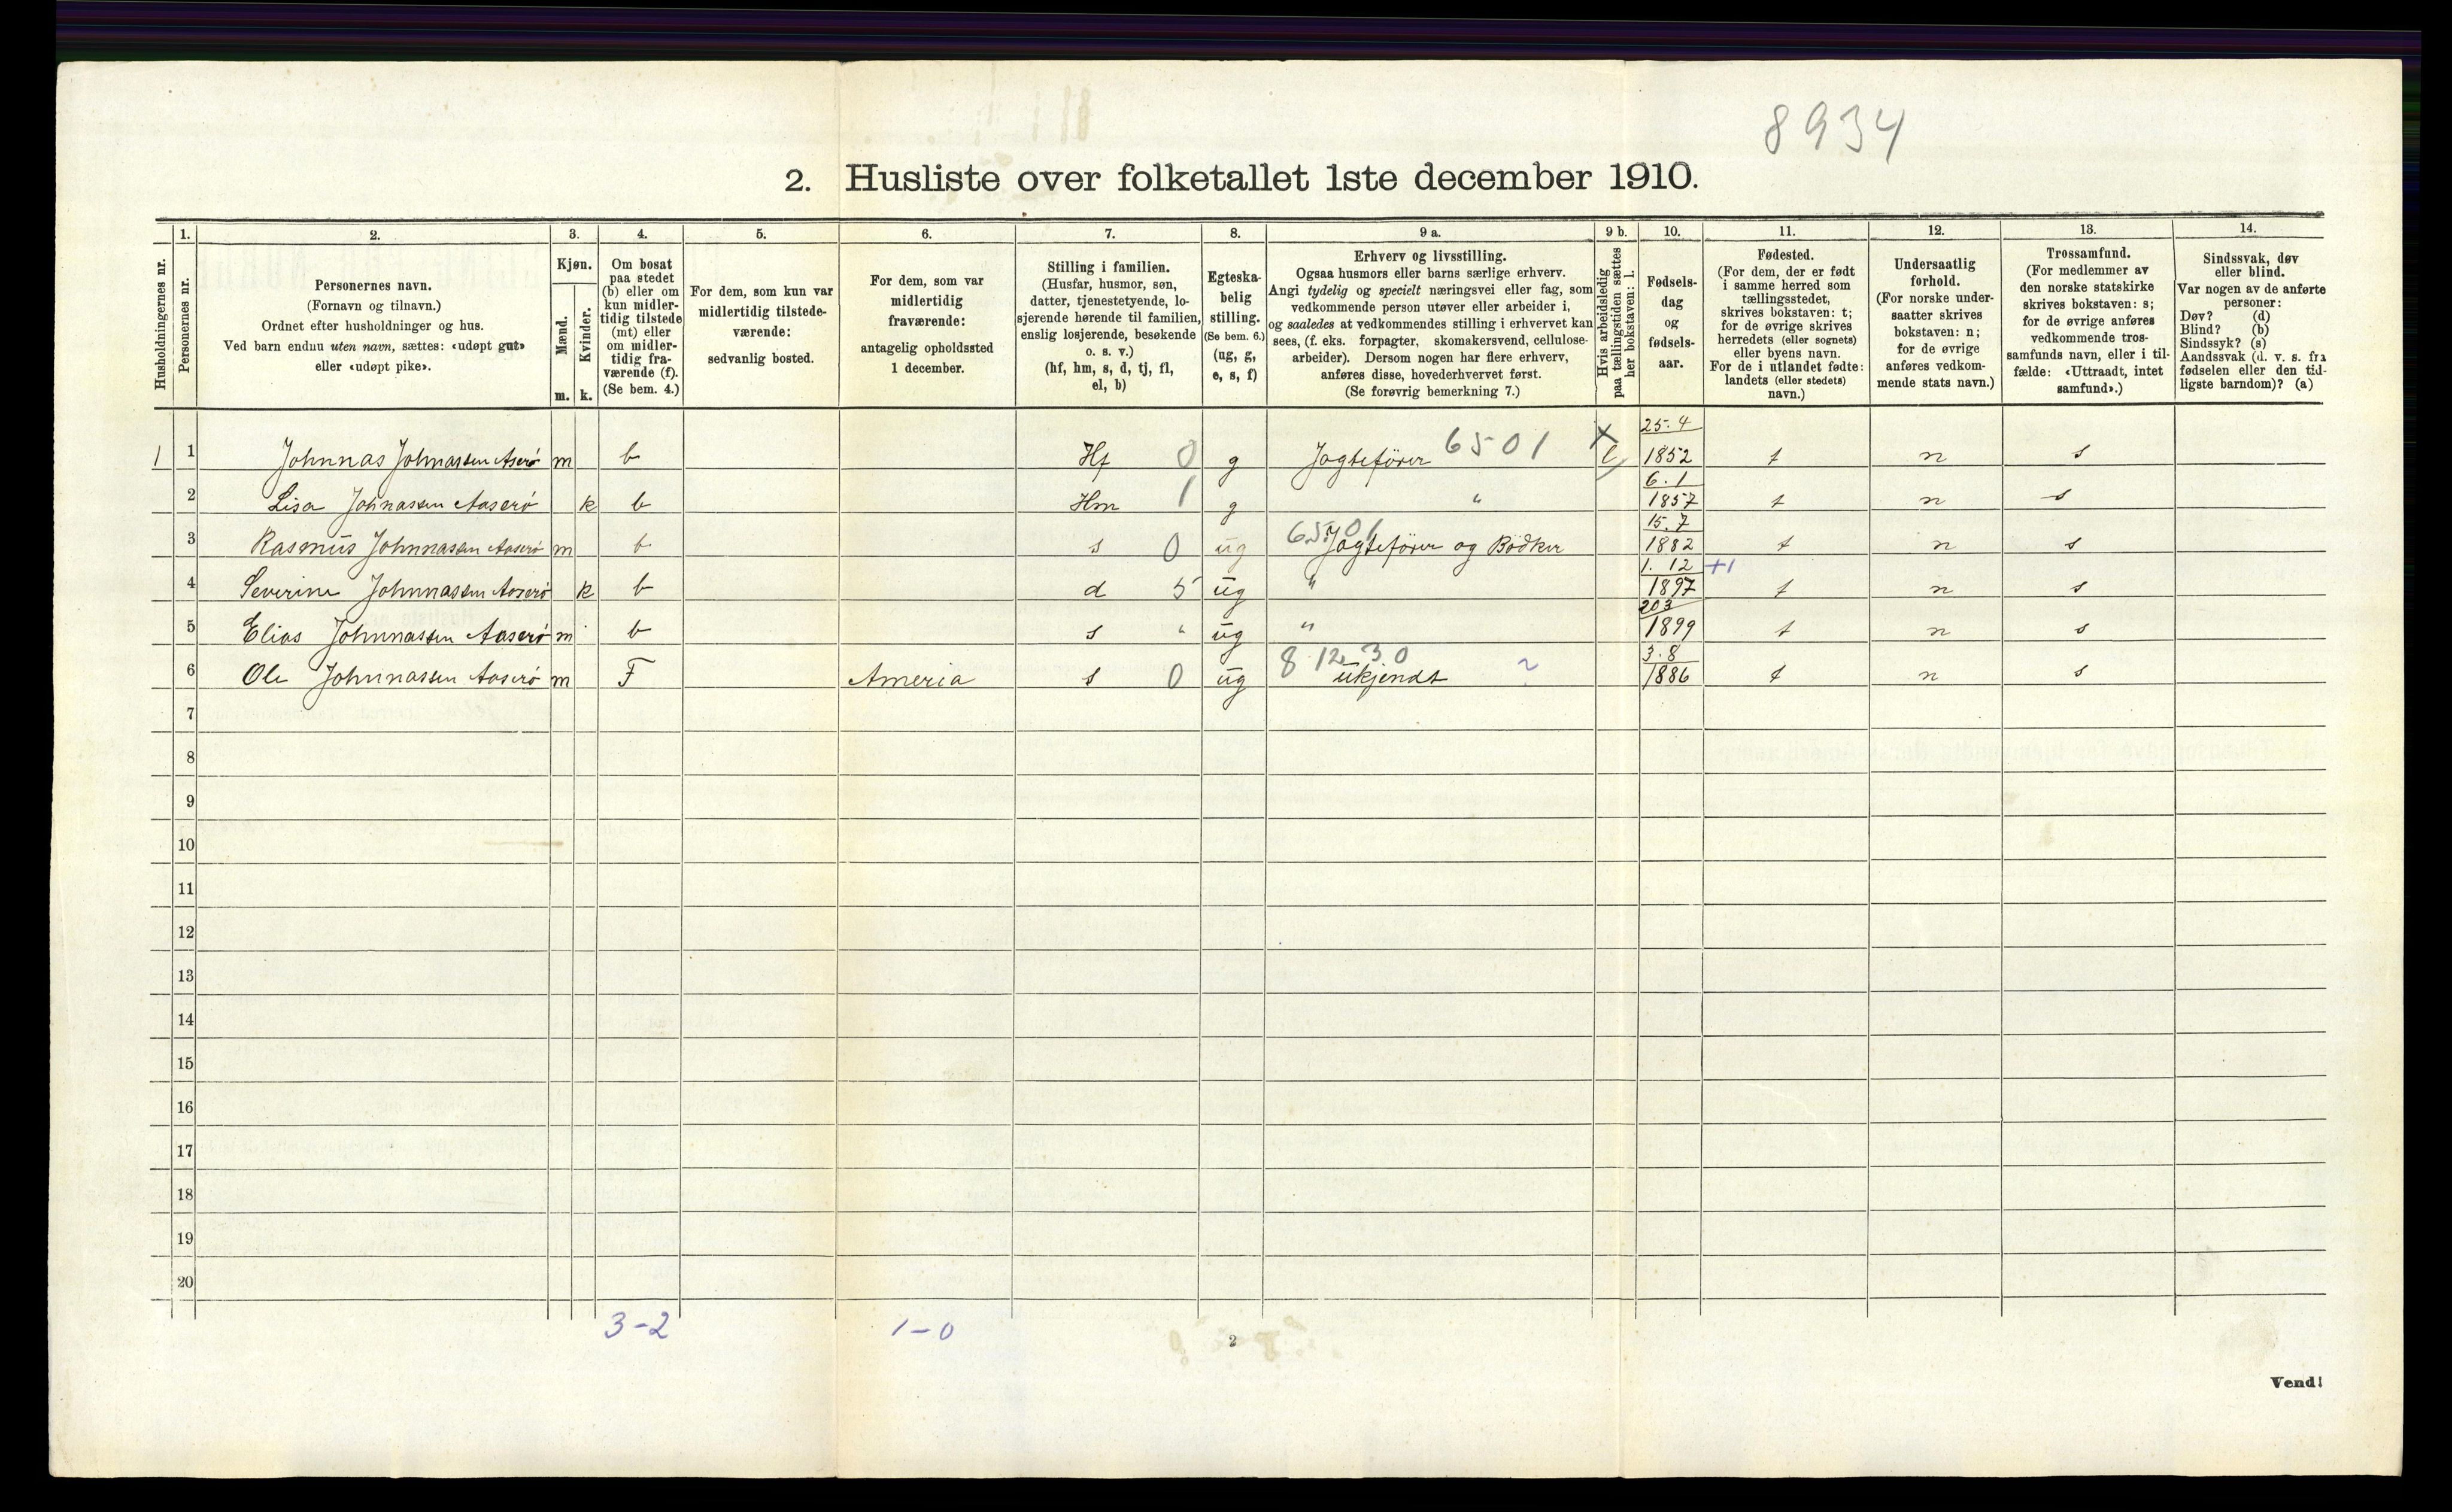 8934
2. Husliste over folketallet 1ste december 1910.
Husholdningernes nr.
1.
Personernes nr.
2.
Personernes navn.
(Fornavn og tilnavn.)
Ordnet efter husholdninger og hus.
Ved barn endnu uten navn, sættes: «udøpt gut»
eller «udøpt pike».
3.
Kjøn.
Mænd.
Kvinder.
m. k.
4.
Om bosat
paa stedet
(b) eller om
kun midler-
tidig tilstede
(mt) eller
om midler-
tidig fra-
værende (f).
(Se bem. 4.)
5.
For dem, som kun var
midlertidig tilstede-
værende:
sedvanlig bosted.
6.
For dem, som var
midlertidig
fraværende:
antagelig opholdssted
1 december.
7.
Stilling i familien.
(Husfar, husmor, søn,
datter, tjenestetyende, lo-
sjerende hørende til familien,
enslig losjerende, besøkende
o. s. v.)
(hf, hm, s, d, tj, fl,
el, b)
8.
Egteska-
belig
stilling.
(Se bem. 6.)
(ug, g,
e, s, f)
9 a.
Erhverv og livsstilling.
Ogsaa husmors eller barns særlige erhverv.
Angi tydelig og specielt næringsvei eller fag, som
vedkommende person utøver eller arbeider i,
og saaledes at vedkommendes stilling i erhvervet kan
sees, (f. eks. forpagter, skomakersvend, cellulose-
arbeider). Dersom nogen har flere erhverv,
anføres disse, hovederhvervet først.
(Se forøvrig bemerkning 7.)
9 b.
Hvis arbeidsledig
paa tællingstiden sættes
her bokstaven: l.
10.
Fødsels-
dag
og
fødsels-
aar.
11.
Fødested.
(For dem, der er født
i samme herred som
tællingsstedet,
skrives bokstaven: t;
for de øvrige skrives
herredets (eller sognets)
eller byens navn.
For de i utlandet fødte:
landets (eller stedets)
navn.)
12.
Undersaatlig
forhold.
(For norske under-
saatter skrives
bokstaven: n;
for de øvrige
anføres vedkom-
mende stats navn.)
13.
Trossamfund.
(For medlemmer av
den norske statskirke
skrives bokstaven: s;
for de øvrige anføres
vedkommende tros-
samfunds navn, eller i til-
fælde: «Uttraadt, intet
samfund».)
14.
Sindssvak, døv
eller blind.
Var nogen av de anførte
personer:
Døv? (d)
Blind? (b)
Sindssyk? (s)
Aandssvak (d. v. s. fra
fødselen eller den tid-
ligste barndom)? (a)
1 1 Johnnas Johnassen Aserö m b Hf 0 g Jagtefører 6501 X l 25.4 1852 t n s
2 Lisa Johnassen Aaserö k b Hm 1 g " 6.1 1857 t n s
3 Rasmus Johnnassen Aaserö m b s 0 ug 6501 Jagtefører og Bödker 15.7 1882 t n s
4 Severine Johnnassen Aaserö k b d 5 ug " 1.12 +1 1897 t n s
5 Elias Johnnassen Aaserö m b s " ug " 203 1899 t n s
6 Ole Johnnassen Aaserö m F Ameria s 0 ug 8 12 30 ukjendt ~ 3.8 1886 t n s
7
8
9
10
11
12
13
14
15
16
17
18
19
20
3-2 1-0
2
Vend!